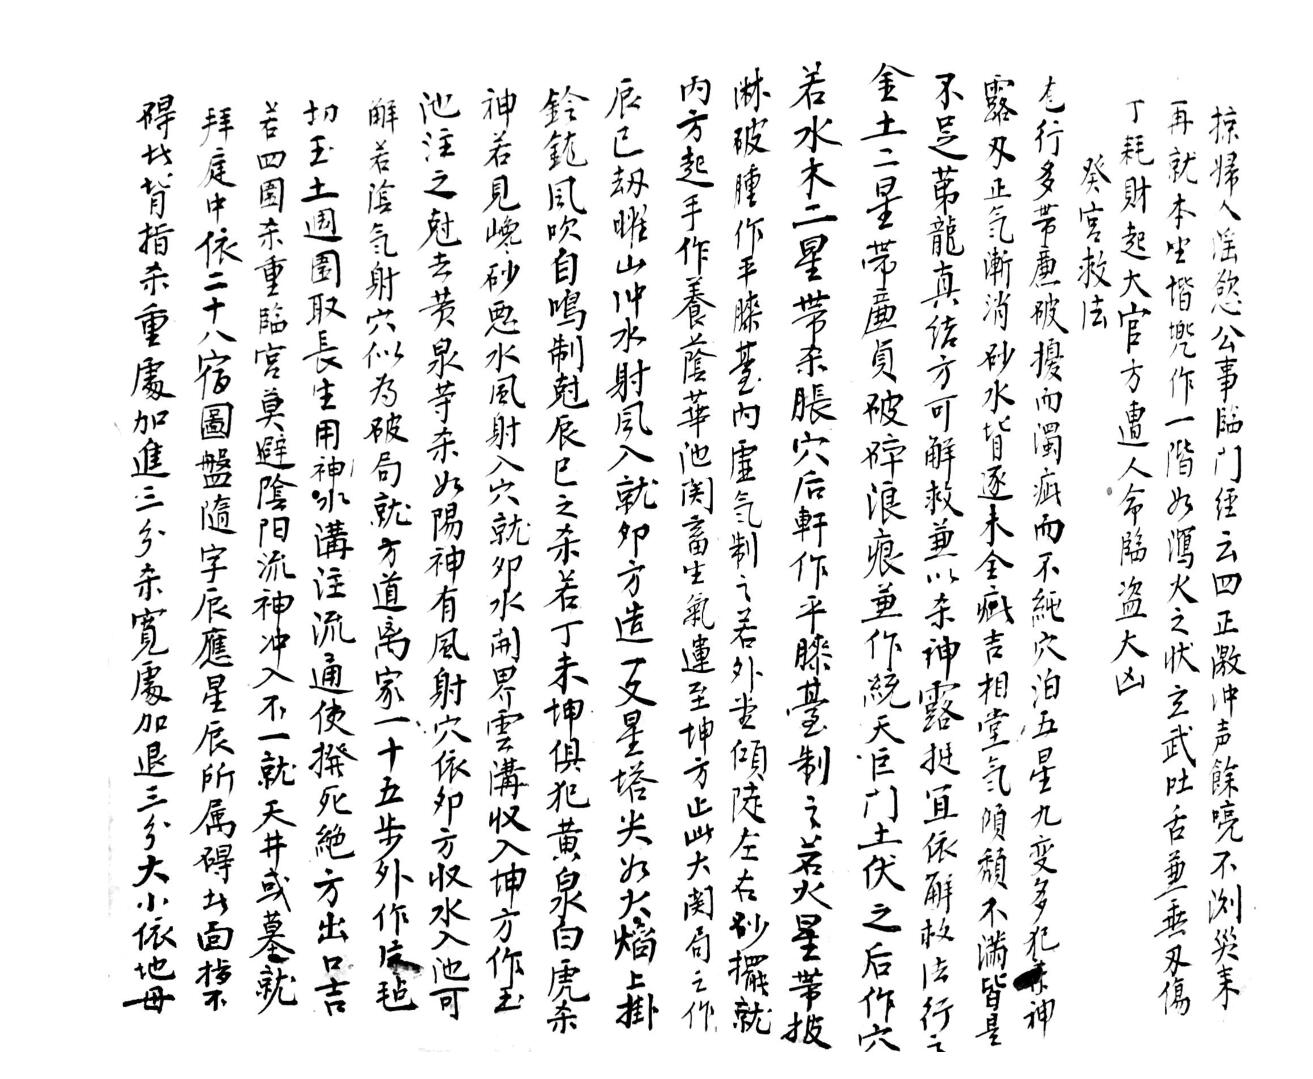 掠婦人淫慾公事臨門經云四正激冲声餘嘵不測災耒
再就本坐堦堺作一階如瀉火之状玄武吐舌兼垂刃傷
丁耗財起大官方遭人命臨盗大凶
癸宮救法
行多帯亷破擾而濁疵而不純穴泊五星九变多犯神
露刃正气漸消砂水皆逐未全藏吉相堂气傾頹不满皆是
不足苐龍真结方可解救兼以杀神露挺宜依解救法行之
金土二星带亷貞破碎浪痕兼作統天巨门土伏之后作穴
若水木二星带杀脹穴后軒作平膝臺制之若火星带披
淋破腫作平膝臺内虚气制之若外堂傾陡左右砂擺就
内方起手作養蔭華池関畜生氣運至坤方止此大関局之作
辰巳刼曜山冲水射风入就卯方造一文星塔尖如火焰上掛
鈴鈗风吹自鳴制尅辰巳之杀若丁未坤俱犯黄泉白虎杀
神若見巉砂悪水風射入穴就卯水開界雲溝収入坤方作玉
池注之尅去黄泉等杀如陽神有風射穴依卯方収水入池可
解若陰气射穴似为破局就方道离家一十五步外作毡
切玉土週圍取長生用神水溝注流通使撥死絶方出口吉
若四圍杀重臨宮莫避陰阳流神冲入不一就天井或墓就
拜庭中依二十八宿圖盤隨字辰應星辰所属碍此面指不
碍此背指杀重處加進三分杀寬處加退三分大小依地毋